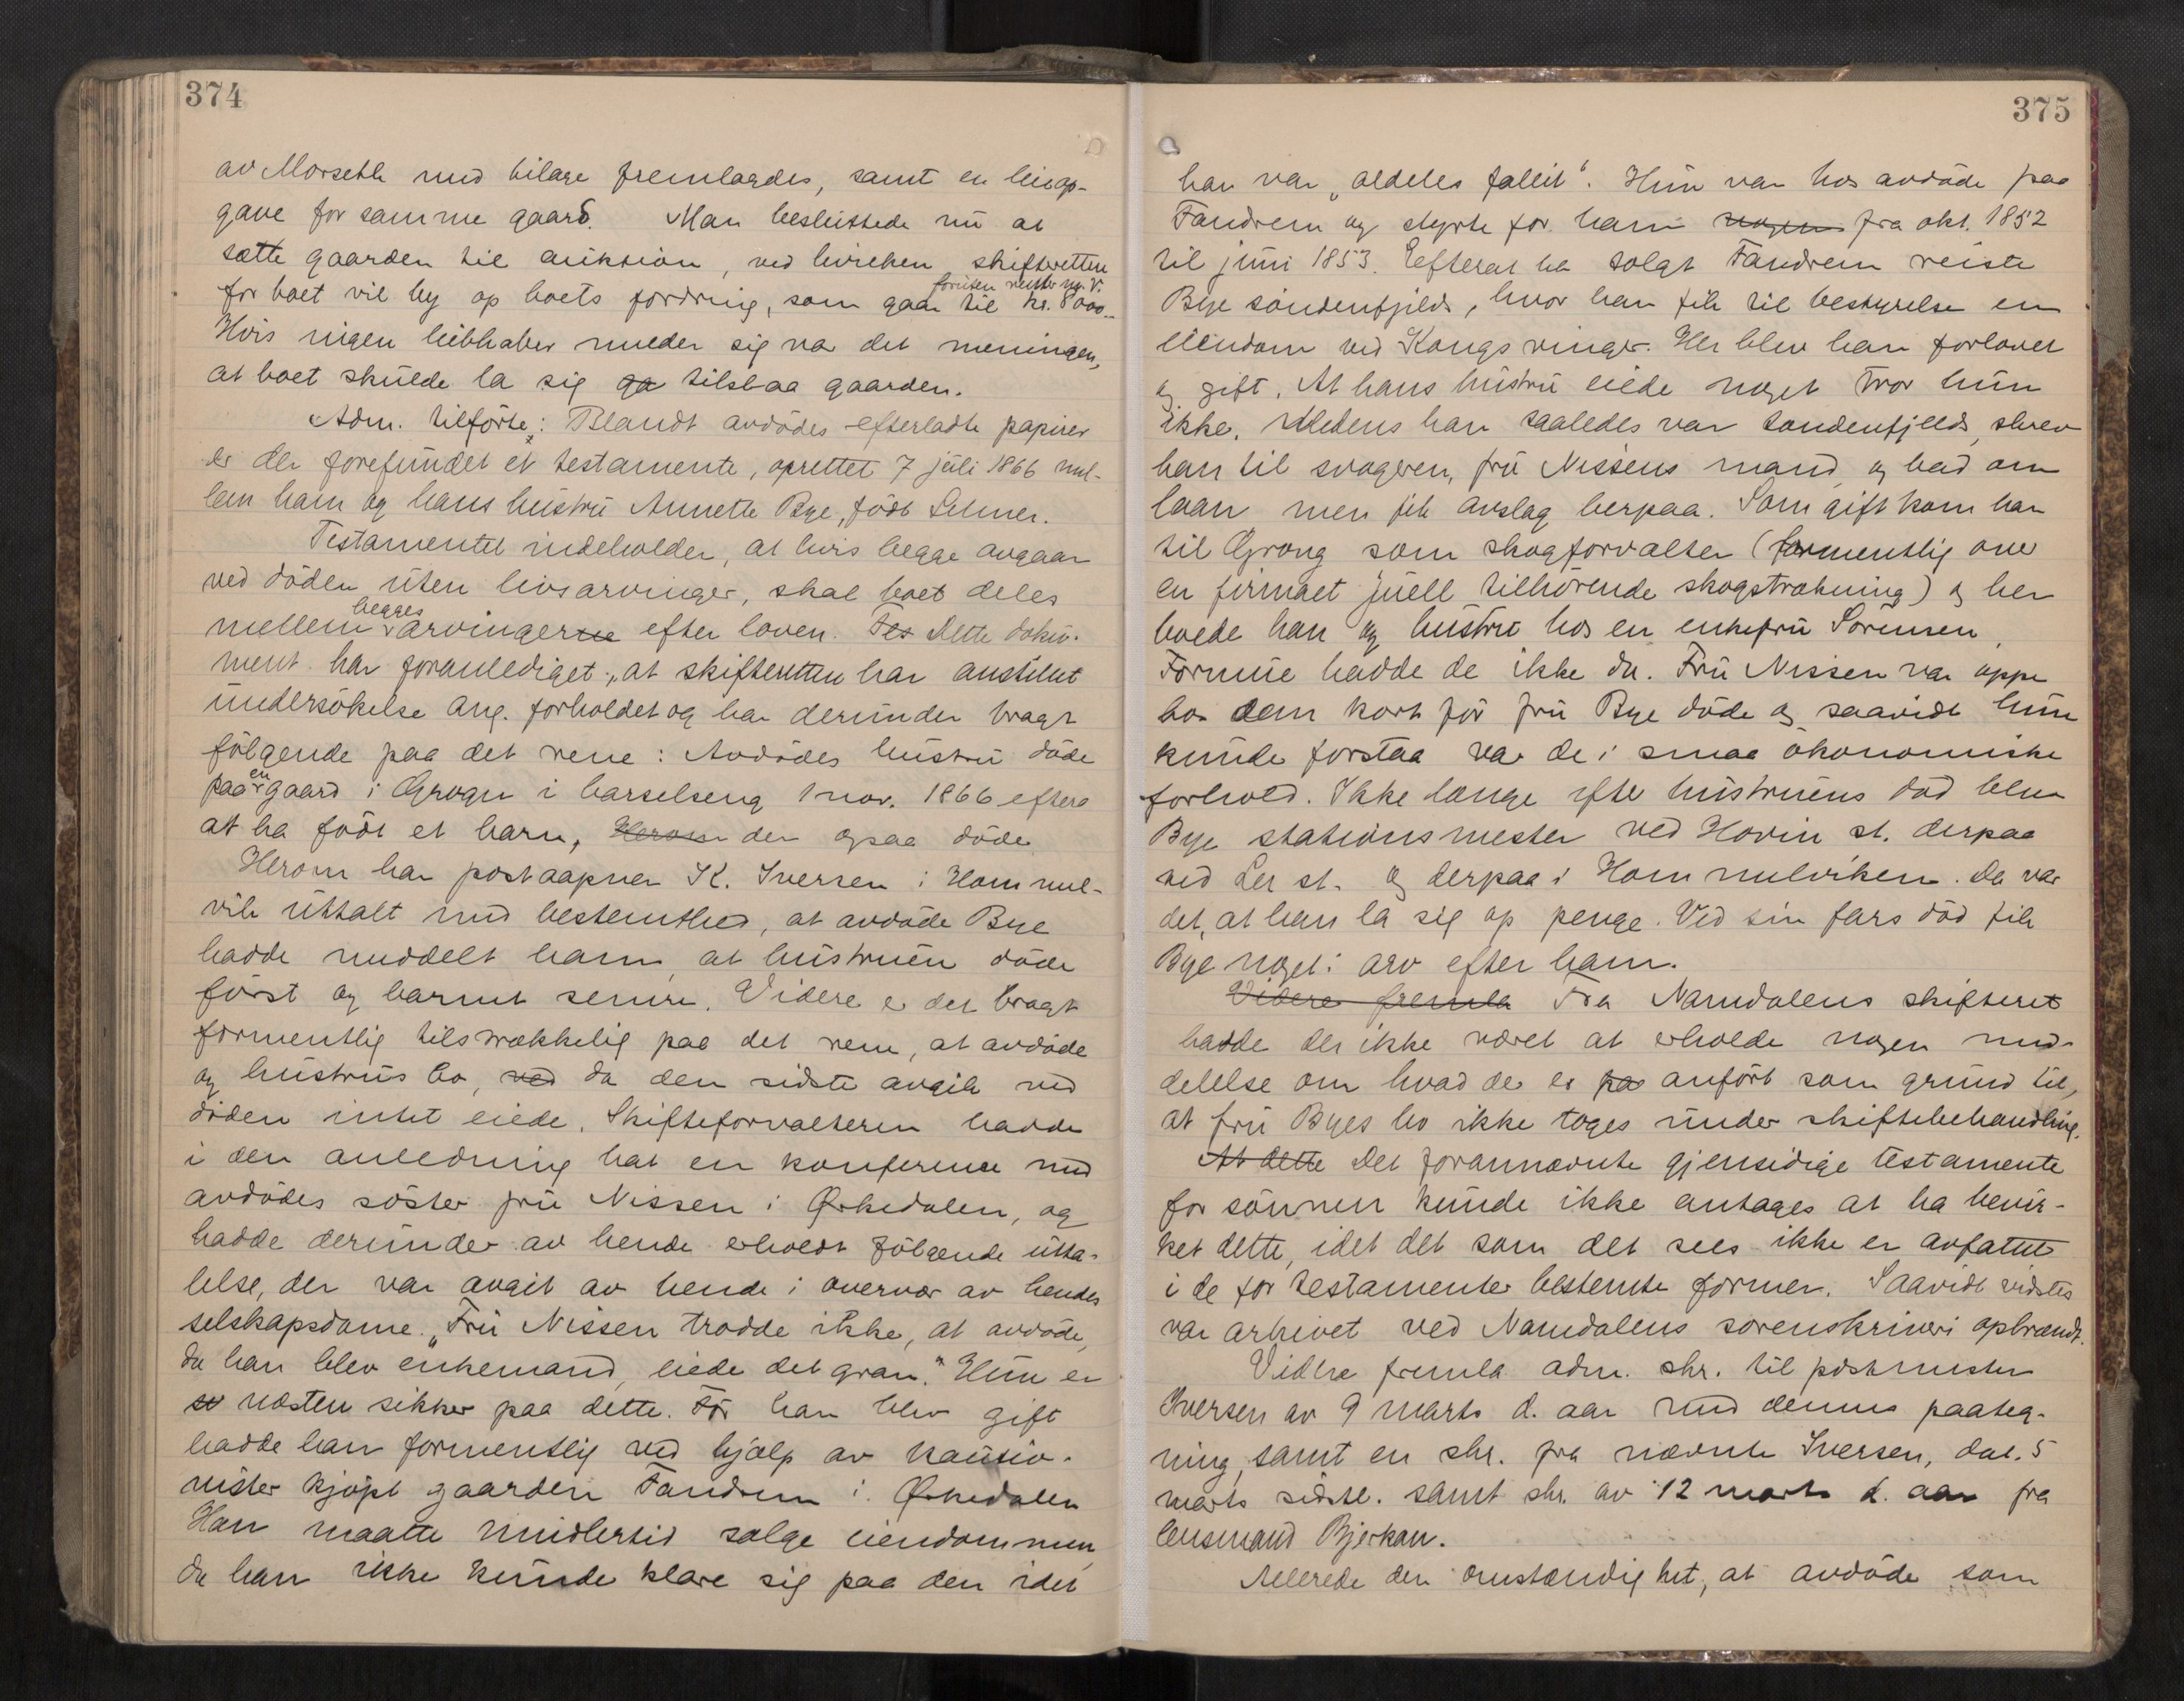 374
av Morseth med bilage fremlagdes, samt en leiop-
gave for samme gaard. Man besluttede nu at
sætte gaarden til auktion, ved hvilken skifteretten
foruten renter m.v.
for boet vil by op boets fordring, som gaar til kr. 8000.-
Hvis ingen liebhaber melder sig var det meningen,
at boet skulde la sig ga tilslaa gaarden.
Adm. tilførte: Blandt avdødes efterladte papirer
er der forefundet et testamente, oprettet 7 juli 1866 mel-
lem ham og hans hustru Annette Bye, født Selmer.
Testamentet indeholder, at hvis begge avgaar
ved døden uten livsarvinger, skal boet deles
begges
mellem arvingerne efter loven. Tes Dette doku-
ment har foranlediget, at skifteretten har anstillet
undersøkelse ang. forholdet og har derunder bragt
følgende paa det rene: Avdødes hustru døde
en
paa gaard i Grogn i barselseng 1 nov. 1866 efter
at ha født et barn, Herom der ogsaa døde
Herom har postaapner K. Iversen i Hommel-
vik uttalt med bestemthed, at avdøde Bye
hadde meddelt ham, at hustruen døde
først og barnet senere. Videre er det bragt
formentlig tilstrækkelig paa det rene, at avdøde
og hustrus bo, ved da den sidste avgik ved
døden intet eiede. Skifteforvalteren hadde
i den anledning hat en konferense med
avdødes søster fru Nissen i Ørkedalen, og
hadde derunder av hende erholdt følgende utta-
lelse, der var avgit av hende i overvær av hendes
selskapsdame. "Fru Nissen trodde ikke, at avdøde,
da han blev enkemand, eiede det gran." Hun er
sv næsten sikker paa dette. Før han blev gift
hadde han formentlig ved hjælp av kautio-
nister kjøpt gaarden Fandrem i Ørkedalen
Han maatte imidlertid sælge eiendommen,
da han ikke kunde klare sig paa den idet
375
han var "aldeles fallit". Hun var hos avdøde paa
Fandrem og styrte for ham nogen fra okt. 1852
til juni 1853. Efterat ha solgt Fandrem reiste
Bye søndenfjelds, hvor han fik til bestyrelse en
eiendom ved Kongsvinger. Her blev han forlovet
og gift. At hans hustru eiede noget tror hun
ikke. Medens han saaledes var søndenfjelds, skrev
han til svogeren, fru Nissens mand og bad om
laan men fik avslag herpaa. Som gift kom han
til Grong som skogforvalter (formentlig over
en firmaet Juell tilhørende skogstrækning) og her
boede han og hustru hos en enkefru Sørensen,
Formue hadde de ikke da. Fru Nissen var oppe
hos dem kort før fru Bye døde og saavidt hun
kunde forstaa var de i smaa økonomiske
forhold. Ikke længe efter hustruens død blev
Bye stationsmester ved Hovin st. derpaa
ved Ler st. og derpaa i Hommelviken. Da var
det, at han la sig op penge. Ved sin fars død fik
Bye noget i arv efter ham.
Videre fremla Fra Namdalens skifteret
hadde der ikke været at erholde nogen med-
delelse om hvad der er pa anført som grund til,
at fru Byes bo ikke toges under skiftebehandling.
At dette Det forannævnte gjensidige testamente
for sønnen kunde ikke antages at ha bevir-
ket dette, idet det som det sees ikke er avfattet
i de for testamenter bestemte former. Saavidt vidstes
var arkivet ved Namdalens sorenskriveri opbrændt.
Videre fremla adm. skr. til postmester
Iversen av 9 marts d. aar med dennes paateg-
ning, samt en skr. fra nævnte Iversen, dat. 5
marts sidstl. samt skr. av 12 marts d. aar fra
lensmand Bjerkan.
Allerede den omstændighet, at avdøde som